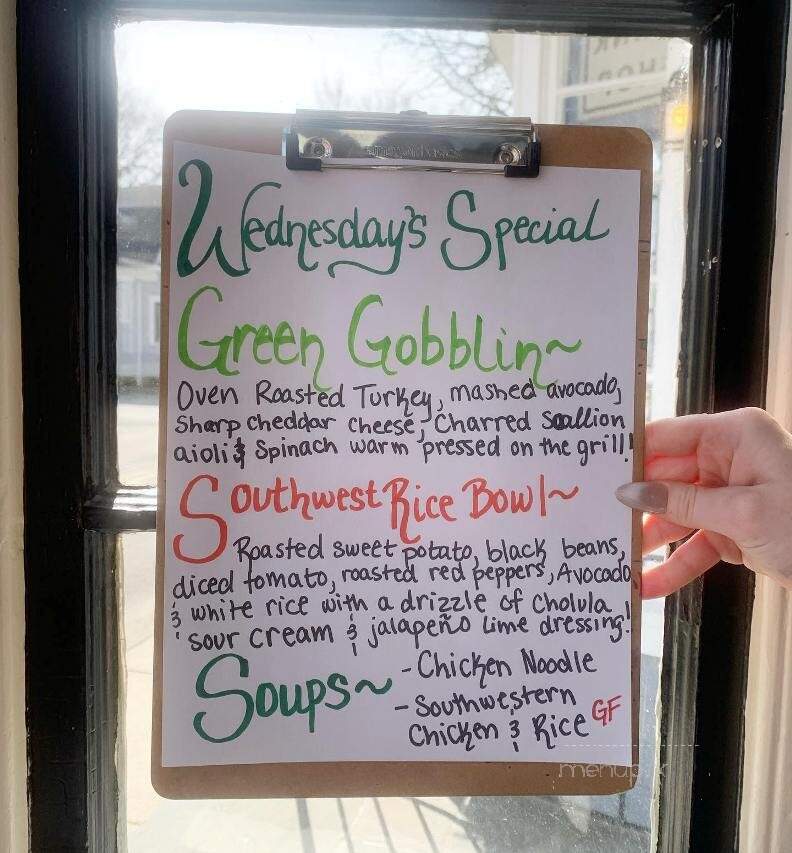 Wednesday's Special
Green Gobblin~
Oven Roasted Turkey, mashed avocado,
Sharp cheddar cheese, Charred Scallion
aioli & Spinach warm pressed on the grill!
Southwest Rice Bowl~
Roasted sweet potato, black beans,
diced tomato, roasted red peppers, Avocado
& white rice with a drizzle of Cholula,
sour cream & jalapeño lime dressing!
Soups~
- Chicken Noodle
- Southwestern
Chicken & Rice GF
SHOP